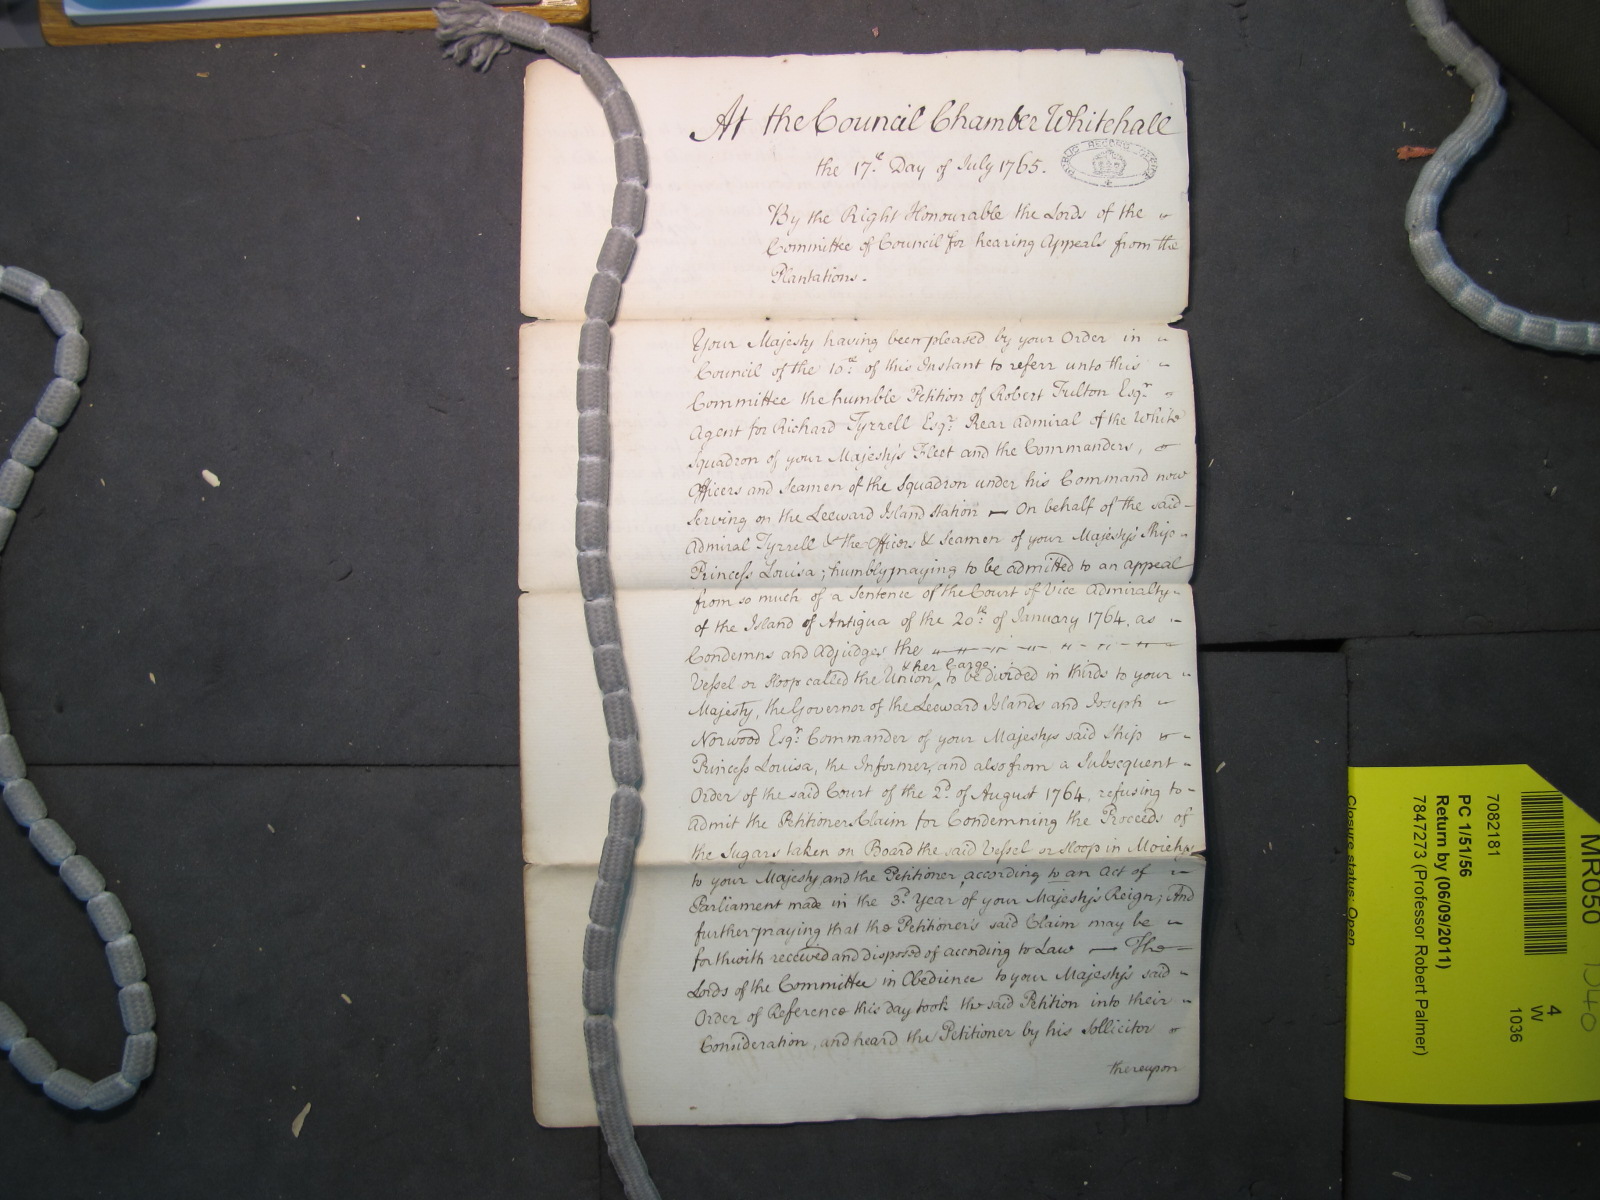 At the Council Chamber Whitehall
the 17th Day of July 1765.
PUBLIC RECORD OFFICE
By the Right Honourable the Lords of the
Committee of Council for hearing Appeals from the
Plantations.
Your Majesty having been pleased by your Order in
Council of the 10th of this Instant to referr unto this
Committee the humble Petition of Robert Fulton Esqr
Agent for Richard Tyrrell Esqr Rear Admiral of the White
Squadron of your Majesty's Fleet and the Commanders,
Officers and Seamen of the Squadron under his Command now
Serving on the Leeward Island Station — On behalf of the said
Admiral Tyrrell & the Officers & Seamen of your Majesty's Ship
Princess Louisa; humbly praying to be admitted to an appeal
from so much of a Sentence of the Court of Vice Admiralty
of the Island of Antigua of the 20th of January 1764, as
Condemns and Adjudges the
& her Cargo
Vessel or Sloop called the Union, to be divided in thirds to your
Majesty, the Governor of the Leeward Islands and Joseph
Norwood Esqr Commander of your Majestys said Ship
Princess Louisa, the Informer, and also from a Subsequent
Order of the said Court of the 2d of August 1764, refusing to
admit the Petitioners Claim for Condemning the Proceeds of
the Sugars taken on Board the said Vessel or Sloop in Moietys
to your Majesty and the Petitioner, according to an Act of
Parliament made in the 3d Year of your Majesty's Reign; And
further praying that the Petitioner's said Claim may be
forthwith received and disposed of according to Law — The
Lords of the Committee in Obedience to your Majesty's said
Order of Reference this day took the said Petition into their
Consideration, and heard the Petitioner by his Sollicitor
thereupon
MR050 1040
4
W
1036
7082181
PC 1/51/56
Return by (06/09/2011)
7847273 (Professor Robert Palmer)
Closure status: Open